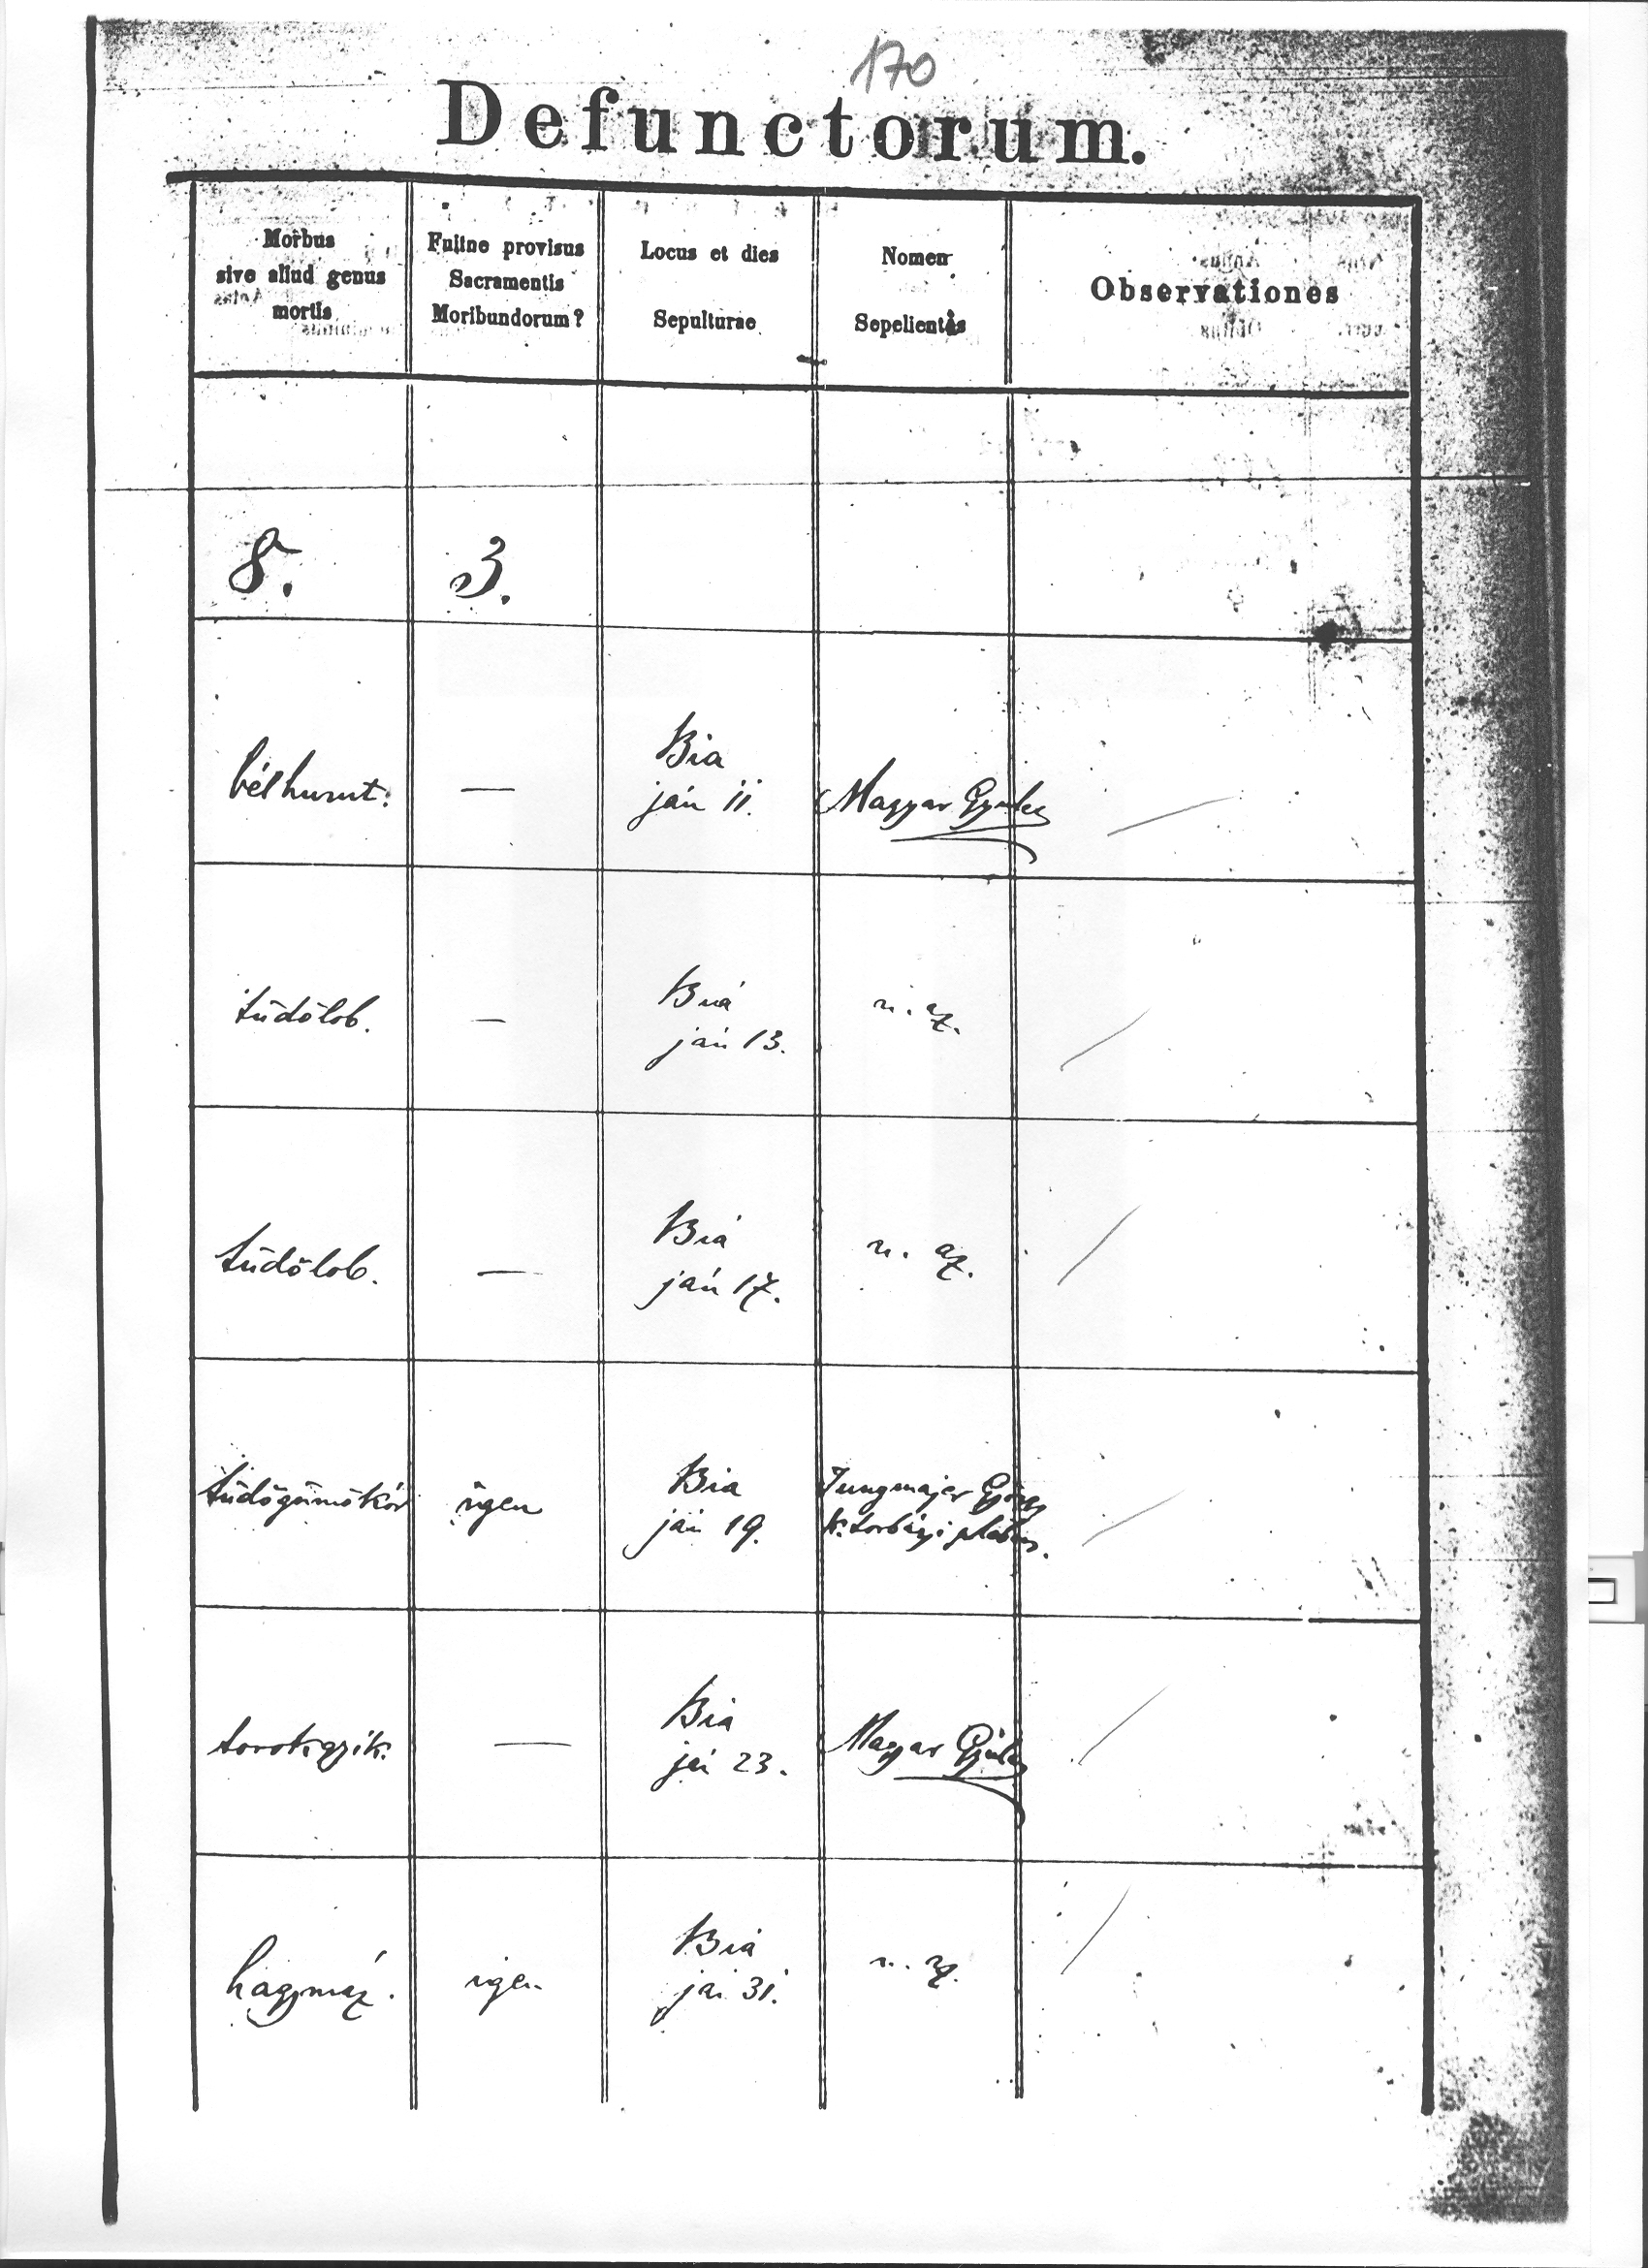 170
Defunctorum.
Morbus
sive aliud genus
mortis
Fuitne provisus
Sacramentis
Moribundorum?
Locus et dies
Sepulturae
Nomen
Sepelientis
Observationes
8. 3.
bélhurut. —
Bia
ján 11.
Magyar Gyula
tüdőlob. —
Bia
ján 13.
u. az.
tüdőlob. —
Bia
ján 17.
u. az.
tüdőgümőkór igen
Bia
ján 19.
Jungmajer György
k. torbágyi plébos.
torokgyík. —
Bia
ján 23.
Magyar Gyula
hagymáz. igen
Bia
ján 31.
u. az.